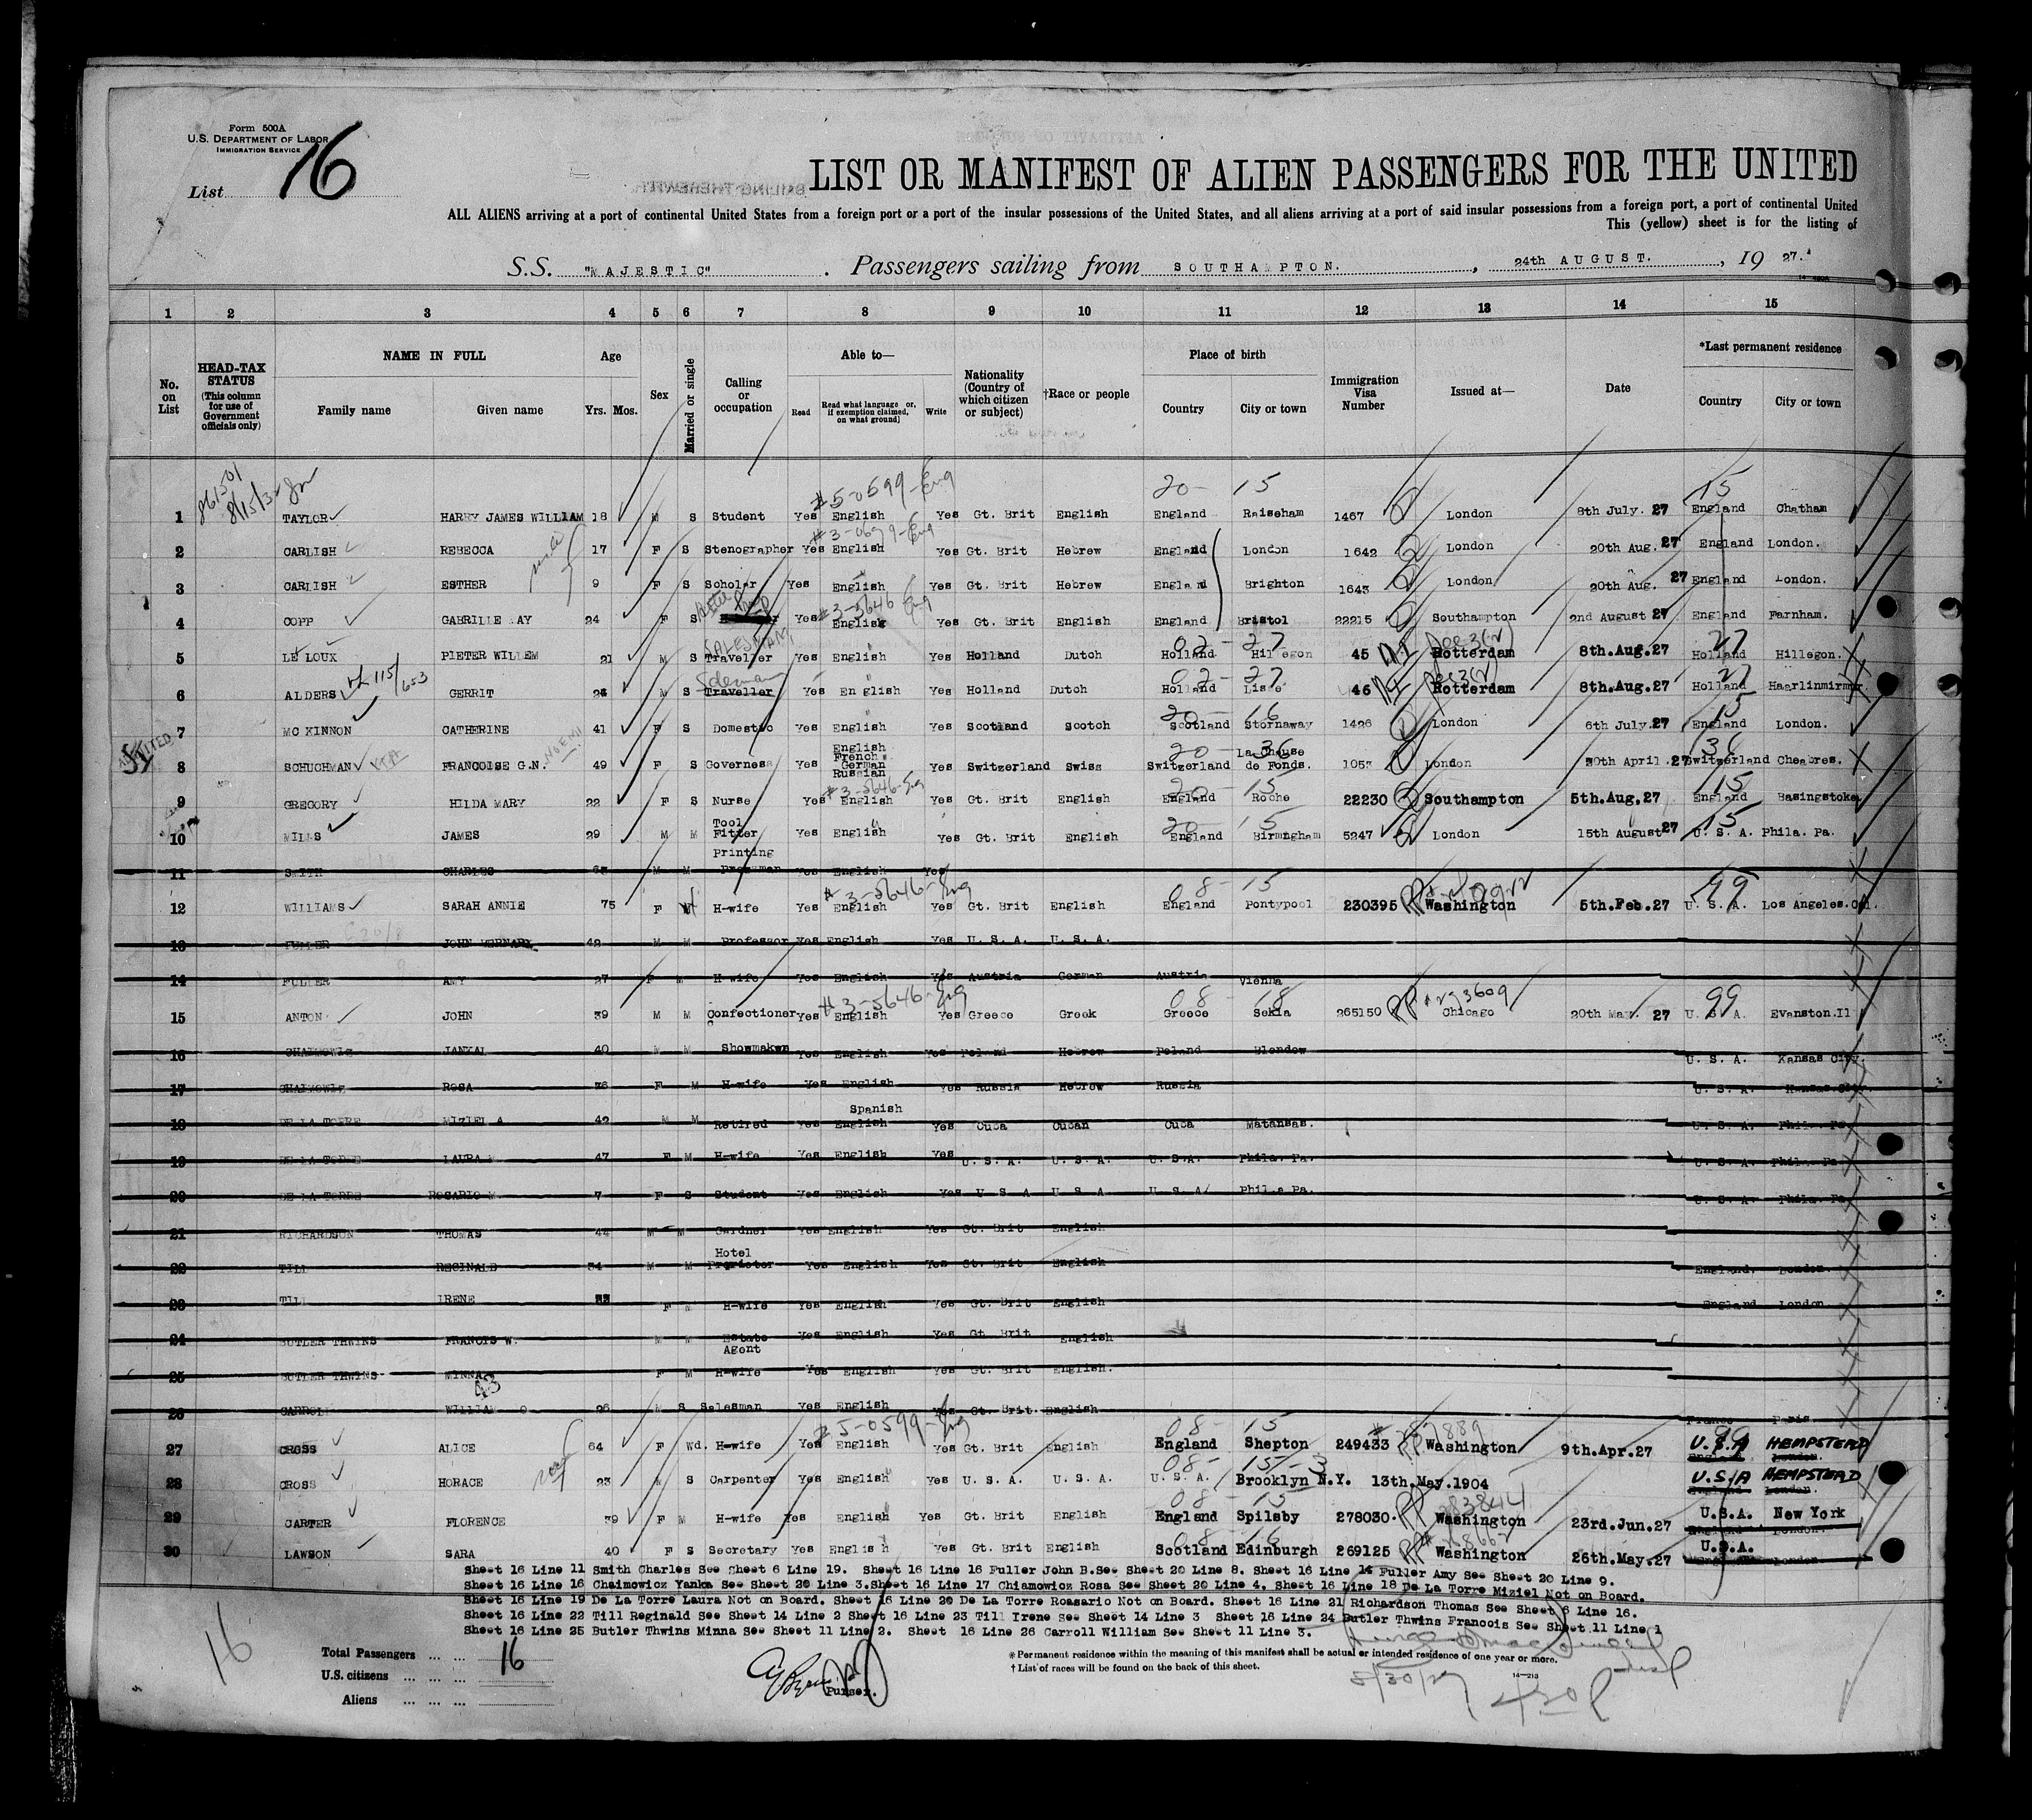 Form 500A
U.S. DEPARTMENT OF LABOR
IMMIGRATION SERVICE
List 16
LIST OR MANIFEST OF ALIEN PASSENGERS FOR THE UNITED
ALL ALIENS arriving at a port of continental United States from a foreign port or a port of the insular possessions of the United States, and all aliens arriving at a port of said insular possessions from a foreign port, a port of continental United
This (yellow) sheet is for the listing of
S.S. "MAJESTIC" . Passengers sailing from SOUTHAMPTON. , 24th AUGUST. , 19 27.
1 2 3 4 5 6 7 8 9 10 11 12 13 14 15
No. on List
HEAD-TAX STATUS (This column for use of Government officials only)
NAME IN FULL
Family name Given name
Age
Yrs. Mos.
Sex
Married or single
Calling or occupation
Able to—
Read Read what language or, if exemption claimed, on what ground) Write
Nationality (Country of which citizen or subject)
†Race or people
Place of birth
Country City or town
Immigration Visa Number
Issued at—
Date
*Last permanent residence
Country City or town
861501 8/15/3
#5-0599-Eng 20- 15 15
1 TAYLOR HARRY JAMES WILLIAM 18 M S Student Yes English Yes Gt. Brit English England Raiseham 1467 London 8th July. 27 England Chatham
2 CARLISH REBECCA 17 F S Stenographer Yes English Yes Gt. Brit Hebrew England London 1642 London 20th Aug. 27 England London.
3 CARLISH ESTHER 9 F S Scholar Yes English Yes Gt. Brit Hebrew England Brighton 1643 London 20th Aug. 27 England London.
#3-5646 Eng
4 COPP GABRILLE MAY 24 F S Yes English Yes Gt. Brit English England Bristol 22215 Southampton 2nd August 27 England Farnham.
SALESMAN 02-27 27
5 LE LOUX PIETER WILLEM 21 M S Traveller Yes English Yes Holland Dutch Holland Hillegon 45 Rotterdam 8th.Aug.27 Holland Hillegon.
Salesman 02-27 27
6 ALDERS GERRIT M S Traveller Yes English Yes Holland Dutch Holland Lisse 46 Rotterdam 8th.Aug.27 Holland Haarlinmirmer.
20- 16 15
7 MC KINNON CATHERINE 41 F S Domestic Yes English Yes Scotland Scotch Scotland Stornaway 1426 London 6th July.27 England London.
ADMITTED
20- 36 36
8 SCHUCHMAN FRANCOISE G.N. 49 F S Governess Yes English French German Russian Yes Switzerland Swiss Switzerland La Chause de Fonds. 1053 London 30th April.27 Switzerland Cheabres.
#3-5646-Eng 20- 15 15
9 GREGORY HILDA MARY 22 F S Nurse Yes English Yes Gt. Brit English England Roche 22230 Southampton 5th.Aug.27 England Basingstoke
20- 15 15
10 MILLS JAMES 29 M M Tool Fitter Yes English Yes Gt. Brit English England Birmngham 5247 London 15th August 27 U.S.A. Phila. Pa.
11 SMITH CHARLES 63 M M Printing Pressman Yes English Yes
#3-5646-Eng 08- 15 99
12 WILLIAMS SARAH ANNIE 75 F H-wife Yes English Yes Gt. Brit English England Pontypool 230395 Washington 5th.Feb.27 U.S.A. Los Angeles.Cal.
13 FULLER JOHN BERNARD 42 M M Professor Yes English Yes U.S.A. U.S.A.
14 FULLER AMY 27 F M H-wife Yes English Yes Austria German Austria Vienna
#3-5646-Eng 08- 18 99
15 ANTON JOHN 39 M M Confectioner Yes English Yes Greece Greek Greece Sekia 265150 Chicago 20th May. 27 U.S.A. Evanston.Il
16 CHAIMOWIC JANKAL 40 M M Showmaker Yes English Yes Poland Hebrew Poland Blendow U.S.A. Kansas City.
17 CHAIMOWIC ROSA 36 F M H-wife Yes English Yes Russia Hebrew Russia U.S.A. Kansas City.
18 DE LA TORRE MIZIEL A 42 M M Retired Yes Spanish English Yes Cuba Cuban Cuba Matansas. U.S.A. Phila. Pa.
19 DE LA TORRE LAURA 47 F M H-wife Yes English Yes U.S.A. U.S.A. U.S.A. Phila. Pa. U.S.A. Phila. Pa.
20 DE LA TORRE ROSARIO M. 7 F S Student Yes English Yes U S A U S A U.S.A. Phila Pa. U.S.A. Phila. Pa.
21 RICHARDSON THOMAS 44 M M Gardner Yes English Yes Gt. Brit English
22 TILL REGINALD 34 M M Hotel Proprietor Yes English Yes Gt. Brit English England. London.
23 TILL IRENE F M H-wife Yes English Yes Gt. Brit English England London.
24 BUTLER THWINS FRANCIS W. M M Estate Agent Yes English Yes Gt. Brit English
25 BUTLER THWINS MINNA F M H-wife Yes English Yes Gt. Brit English.
26 CARROLL WILLIAM O 26 M S Salesman Yes English Yes Gt. Brit. English France Paris.
#5-0599-Eng 08- 15
27 CROSS ALICE 64 F Wd. H-wife Yes English Yes Gt. Brit English England Shepton 249433 Washington 9th.Apr.27 U.S.A HEMPSTEAD
28 CROSS HORACE 23 M S Carpenter Yes English Yes U.S.A. U.S.A. U.S.A. Brooklyn N.Y. 13th.May.1904 U.S.A HEMPSTEAD
08- 15
29 CARTER FLORENCE 39 F M H-wife Yes English Yes Gt. Brit English England Spilsby 278030. Washington 23rd.Jun.27 U.S.A. New York
08-16
30 LAWSON SARA 40 F S Secretary Yes English Yes Gt. Brit English Scotland Edinburgh 269125 Washington 26th.May.27 U.S.A.
Sheet 16 Line 11 Smith Charles See Sheet 6 Line 19. Sheet 16 Line 16 Fuller John B.See Sheet 20 Line 8. Sheet 16 Line 14 Fuller Amy See Sheet 20 Line 9.
Sheet 16 Line 16 Chaimowicz Yanka See Sheet 20 Line 3.Sheet 16 Line 17 Chiamowicz Rosa See Sheet 20 Line 4. Sheet 16 Line 18 De La Torre Miziel Not on Board.
Sheet 16 Line 19 De La Torre Laura Not on Board. Sheet 16 Line 20 De La Torre Roasario Not on Board. Sheet 16 Line 21 Richardson Thomas See Sheet 6 Line 16.
Sheet 16 Line 22 Till Reginald See Sheet 14 Line 2 Sheet 16 Line 23 Till Irene See Sheet 14 Line 3 Sheet 16 Line 24 Butler Thwins Francois See Sheet 11 Line 1
Sheet 16 Line 25 Butler Thwins Minna See Sheet 11 Line 2. Sheet 16 Line 26 Carroll William See Sheet 11 Line 3.
16
Total Passengers ... ... 16
U.S. citizens ... ... ...
Aliens ... ... ...
Purser.
* Permanent residence within the meaning of this manifest shall be actual or intended residence of one year or more.
† List of races will be found on the back of this sheet.
14—213
8/30/27